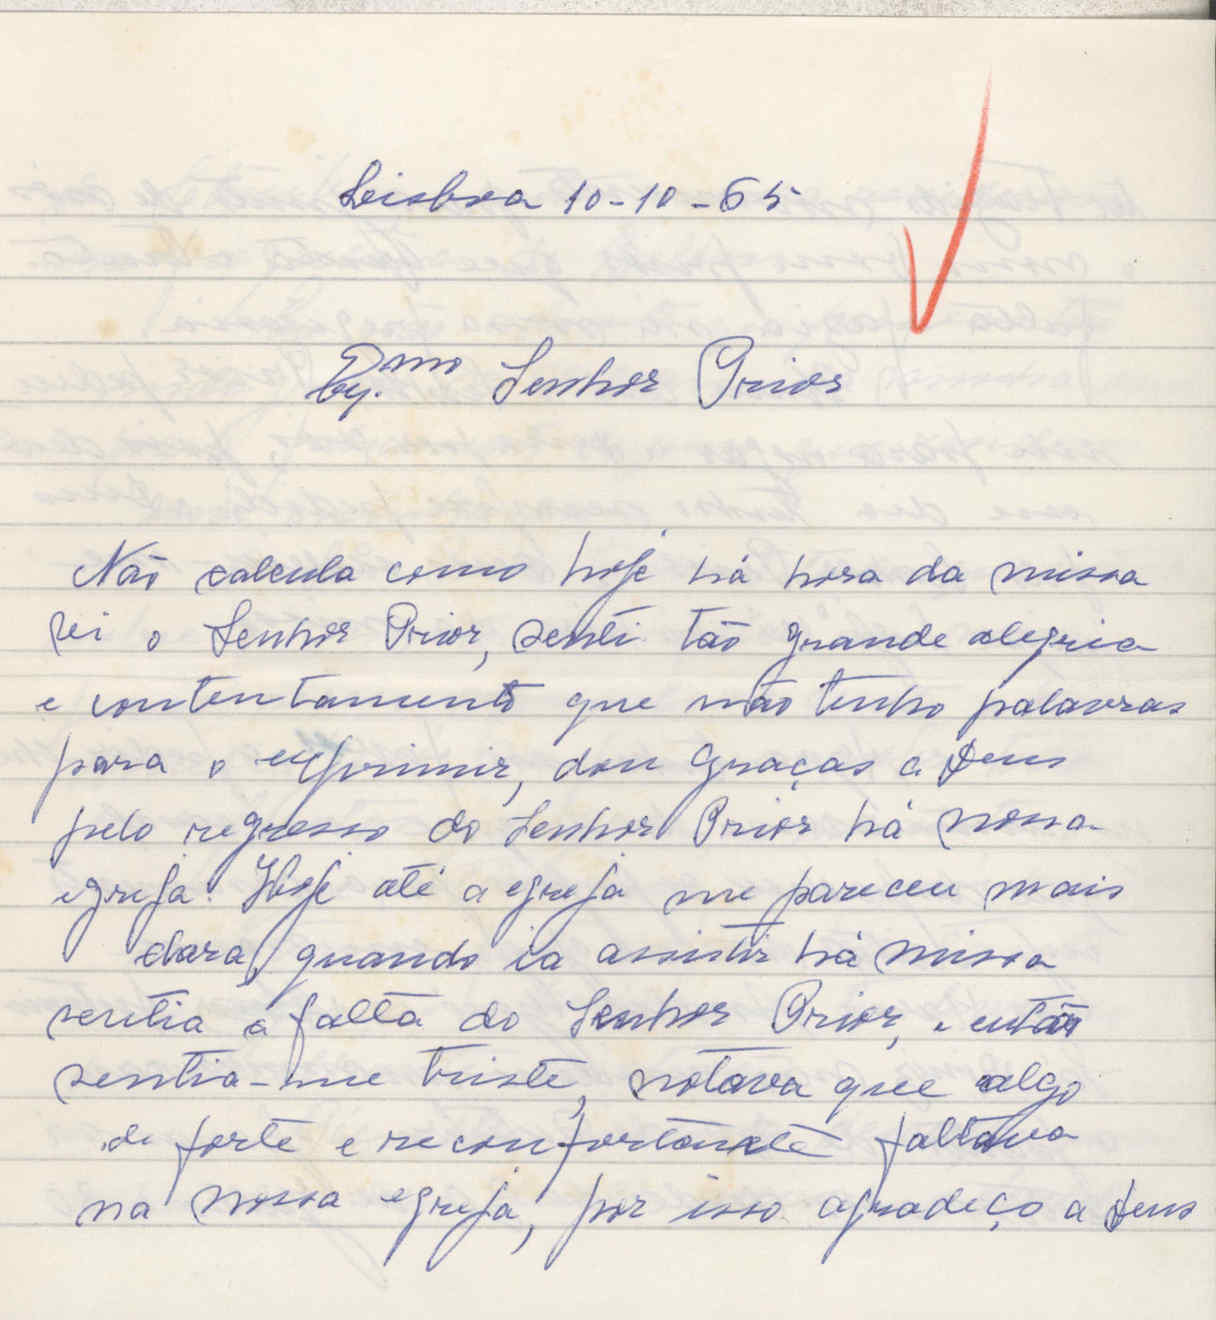 Lisboa 10-10-65
Exmo Senhor Prior
Não calcula como hoje há hora da missa
vi o Senhor Prior, senti tão grande alegria
e contentamento que não tenho palavras
para o exprimir, dou Graças a Deus
pelo regresso do Senhor Prior há nossa
egreja. Hoje até a egreja me pareceu mais
clara, quando ia assistir há missa
sentia a falta do Senhor Prior, e então
sentia-me triste, notava que algo
de forte e reconfortante faltava
na nossa egreja, por isso agradeço a Deus